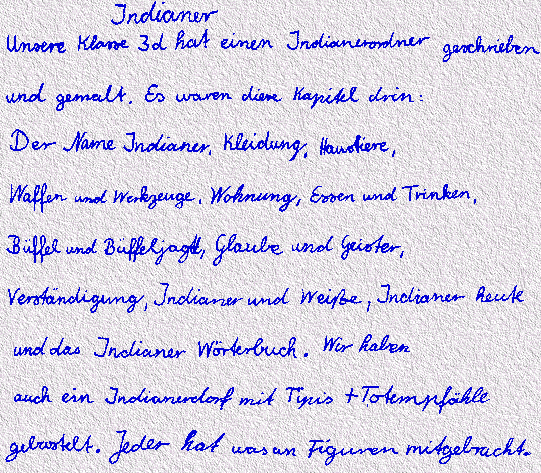 Indianer
Unsere Klasse 3d hat einen Indianerordner geschrieben
und gemalt. Es waren diese Kapitel drin:
Der Name Indianer, Kleidung, Haustiere,
Waffen und Werkzeuge, Wohnung, Essen und Trinken,
Büffel und Büffeljagd, Glaube und Geister,
Verständigung, Indianer und Weiße, Indianer heute
und das Indianer Wörterbuch. Wir haben
auch ein Indianerdorf mit Tipis + Totempfähle
gebastelt. Jeder hat was an Figuren mitgebracht.